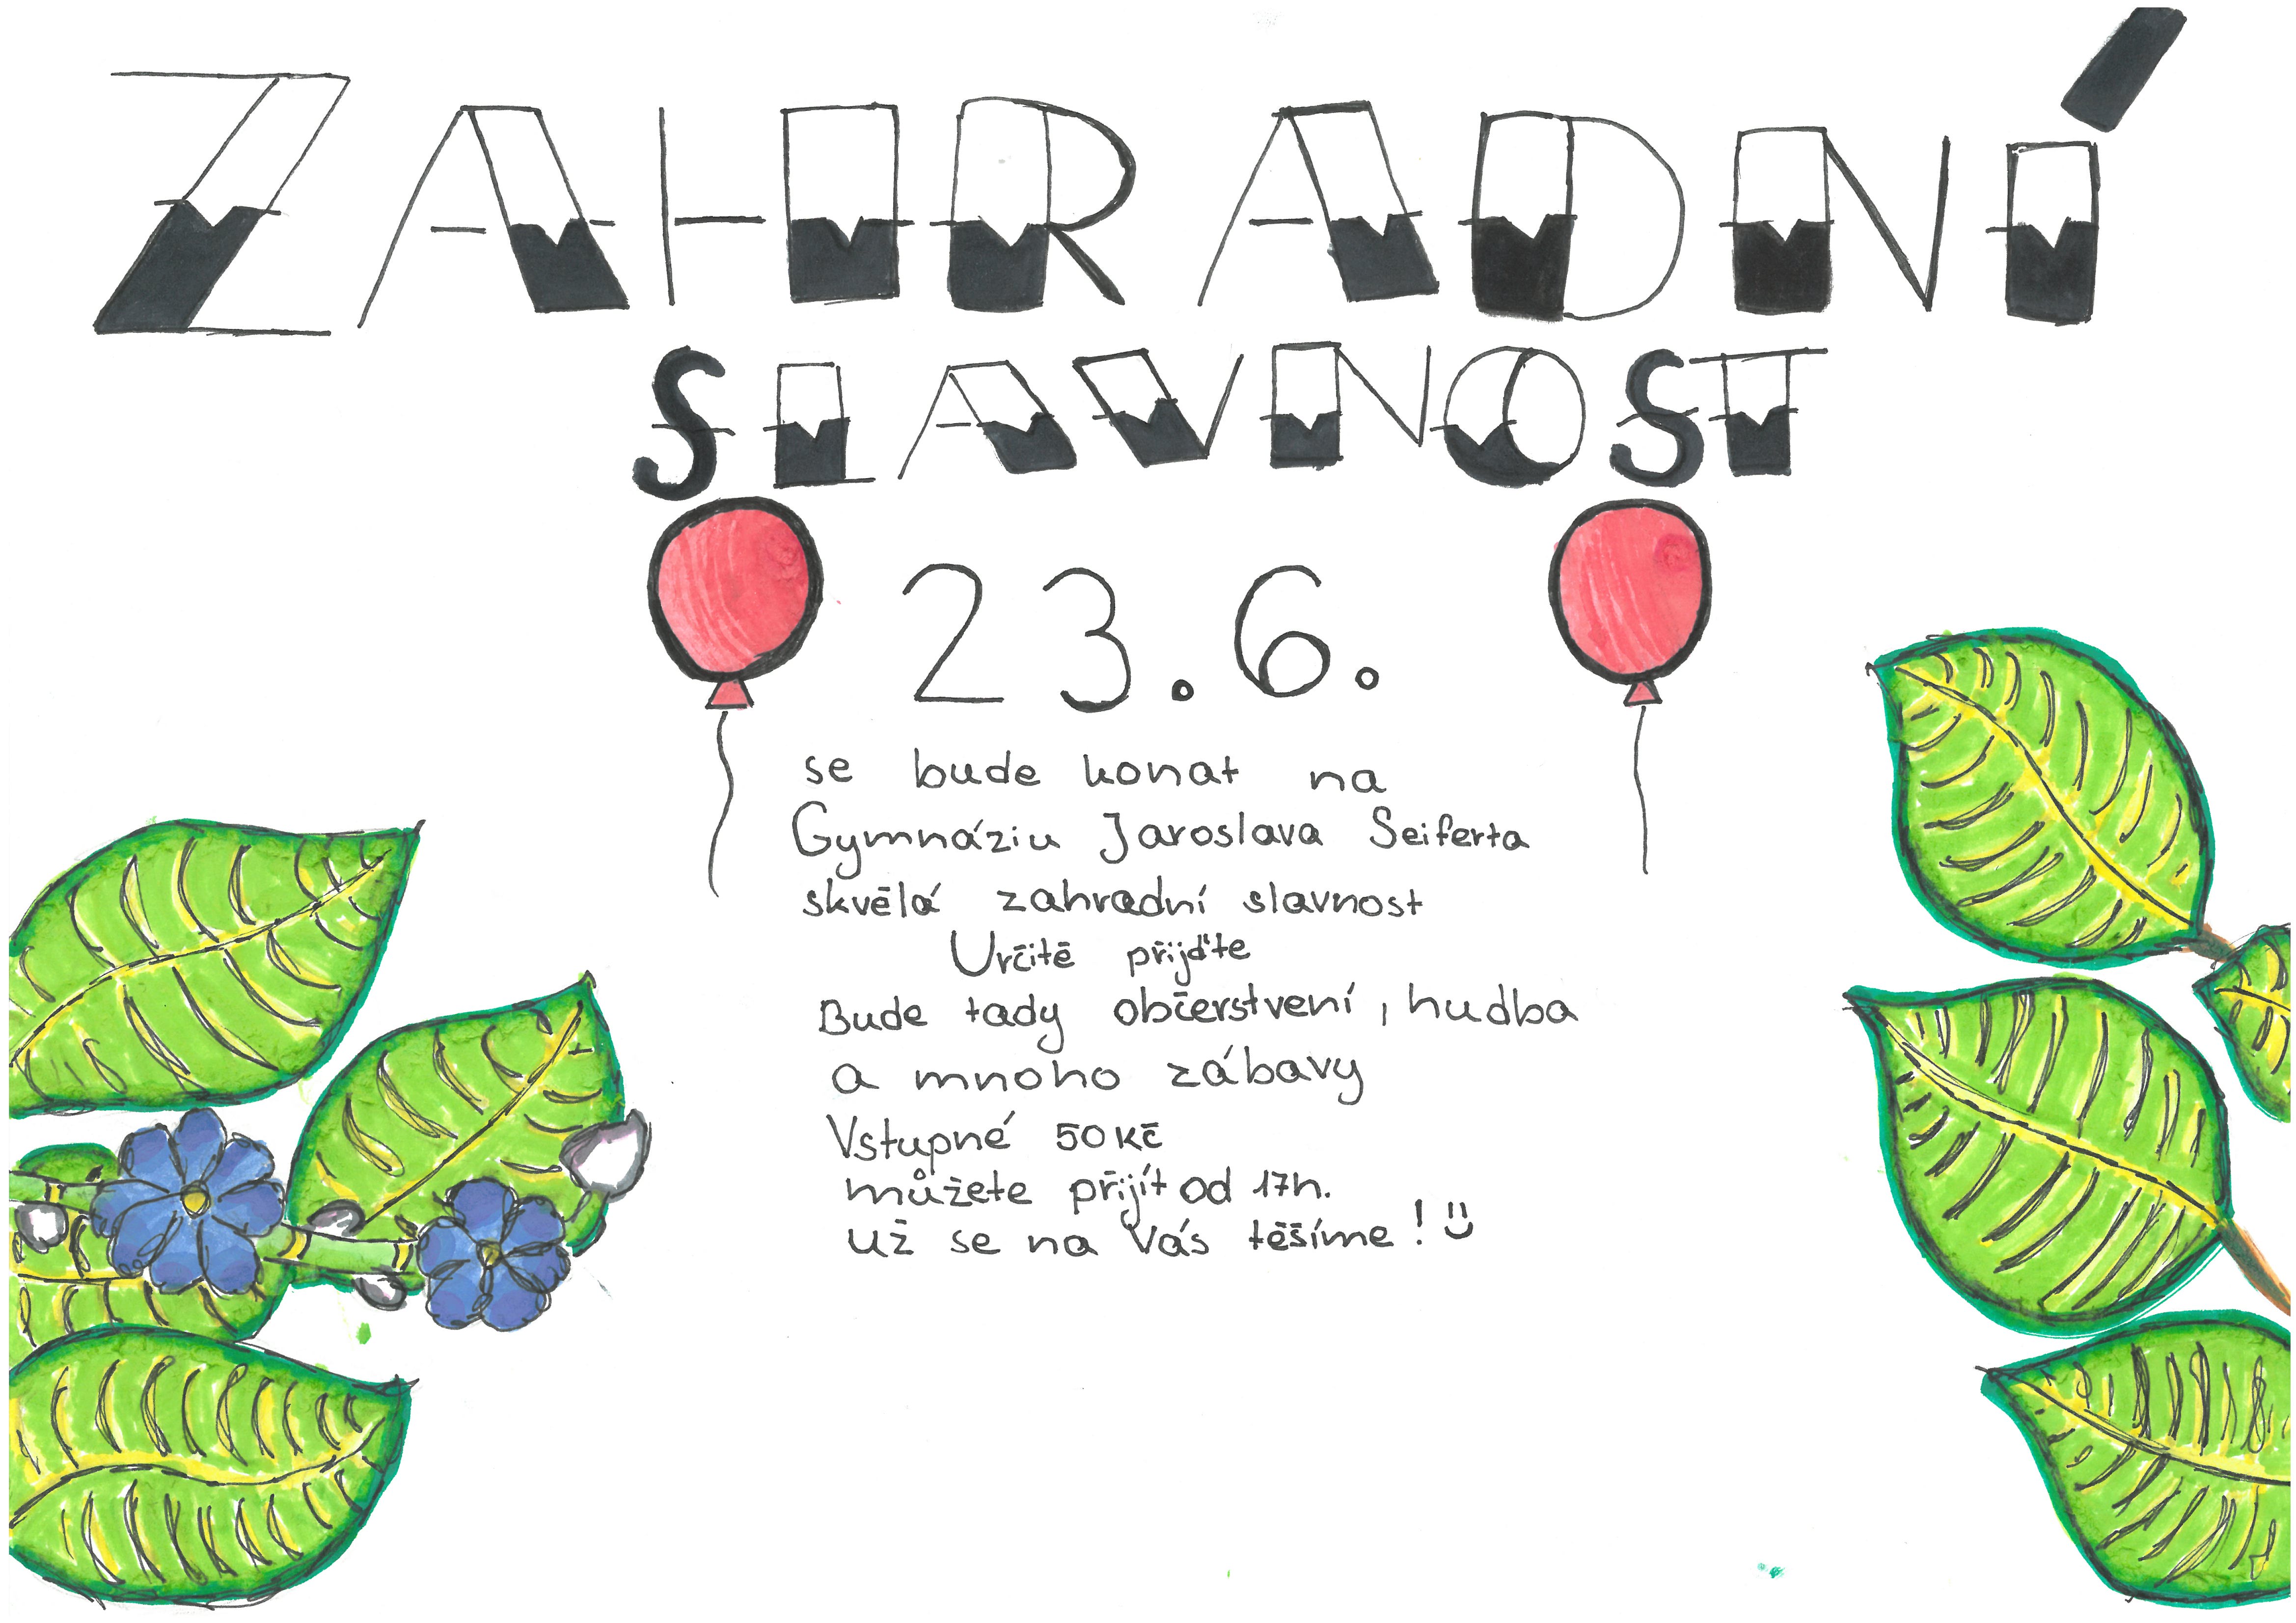 ZAHRADNÍ
SLAVNOST
23.6.
se bude konat na
Gymnáziu Jaroslava Seiferta
skvělá zahradní slavnost
Určitě přijďte
Bude tady občerstvení, hudba
a mnoho zábavy
Vstupné 50Kč
můžete přijít od 17h.
už se na Vás těšíme! :)